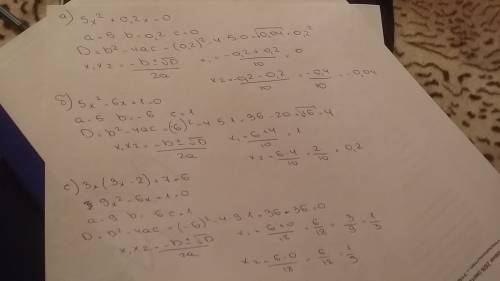 а) 5x² + 0,2x = 0
a = 5 b = 0,2 c = 0
D = b² - 4ac = (0,2)² - 4 5 0 = √0,04 = 0,2²
x₁ x₂ = -b ± √D / 2a x₁ = -0,2 + 0,2 / 10 = 0
x₂ = -0,2 - 0,2 / 10 = -0,4 / 10 = -0,04
б) 5x² - 6x + 1 = 0
a = 5 b = -6 c = 1
D = b² - 4ac = (6)² - 4 5 1 = 36 - 20 = √16 = 4
x₁ x₂ = -b ± √D / 2a x₁ = 6 + 4 / 10 = 1
x₂ = 6 - 4 / 10 = 2 / 10 = 0,2
c) 3x (3x - 2) + 7 = 6
9x² - 6x + 1 = 0
a = 9 b = 6 c = 1
D = b² - 4ac = (-6)² - 4 9 1 = 36 + 36 = 0
x₁ x₂ = -b ± √D / 2a x₁ = 6 + 0 / 18 = 6 / 18 = 3 / 9 = 1 / 3
x₂ = 6 - 0 / 18 = 6 / 18 = 1 / 3